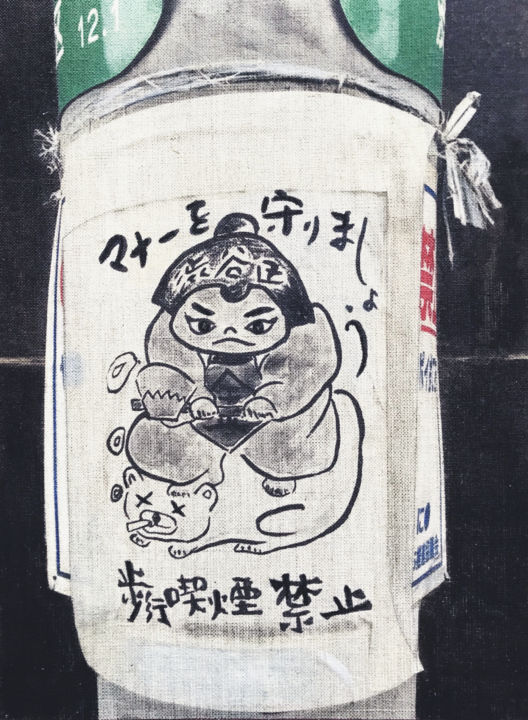 12.1
マナーを守りましょう
渋谷区
歩行喫煙禁止